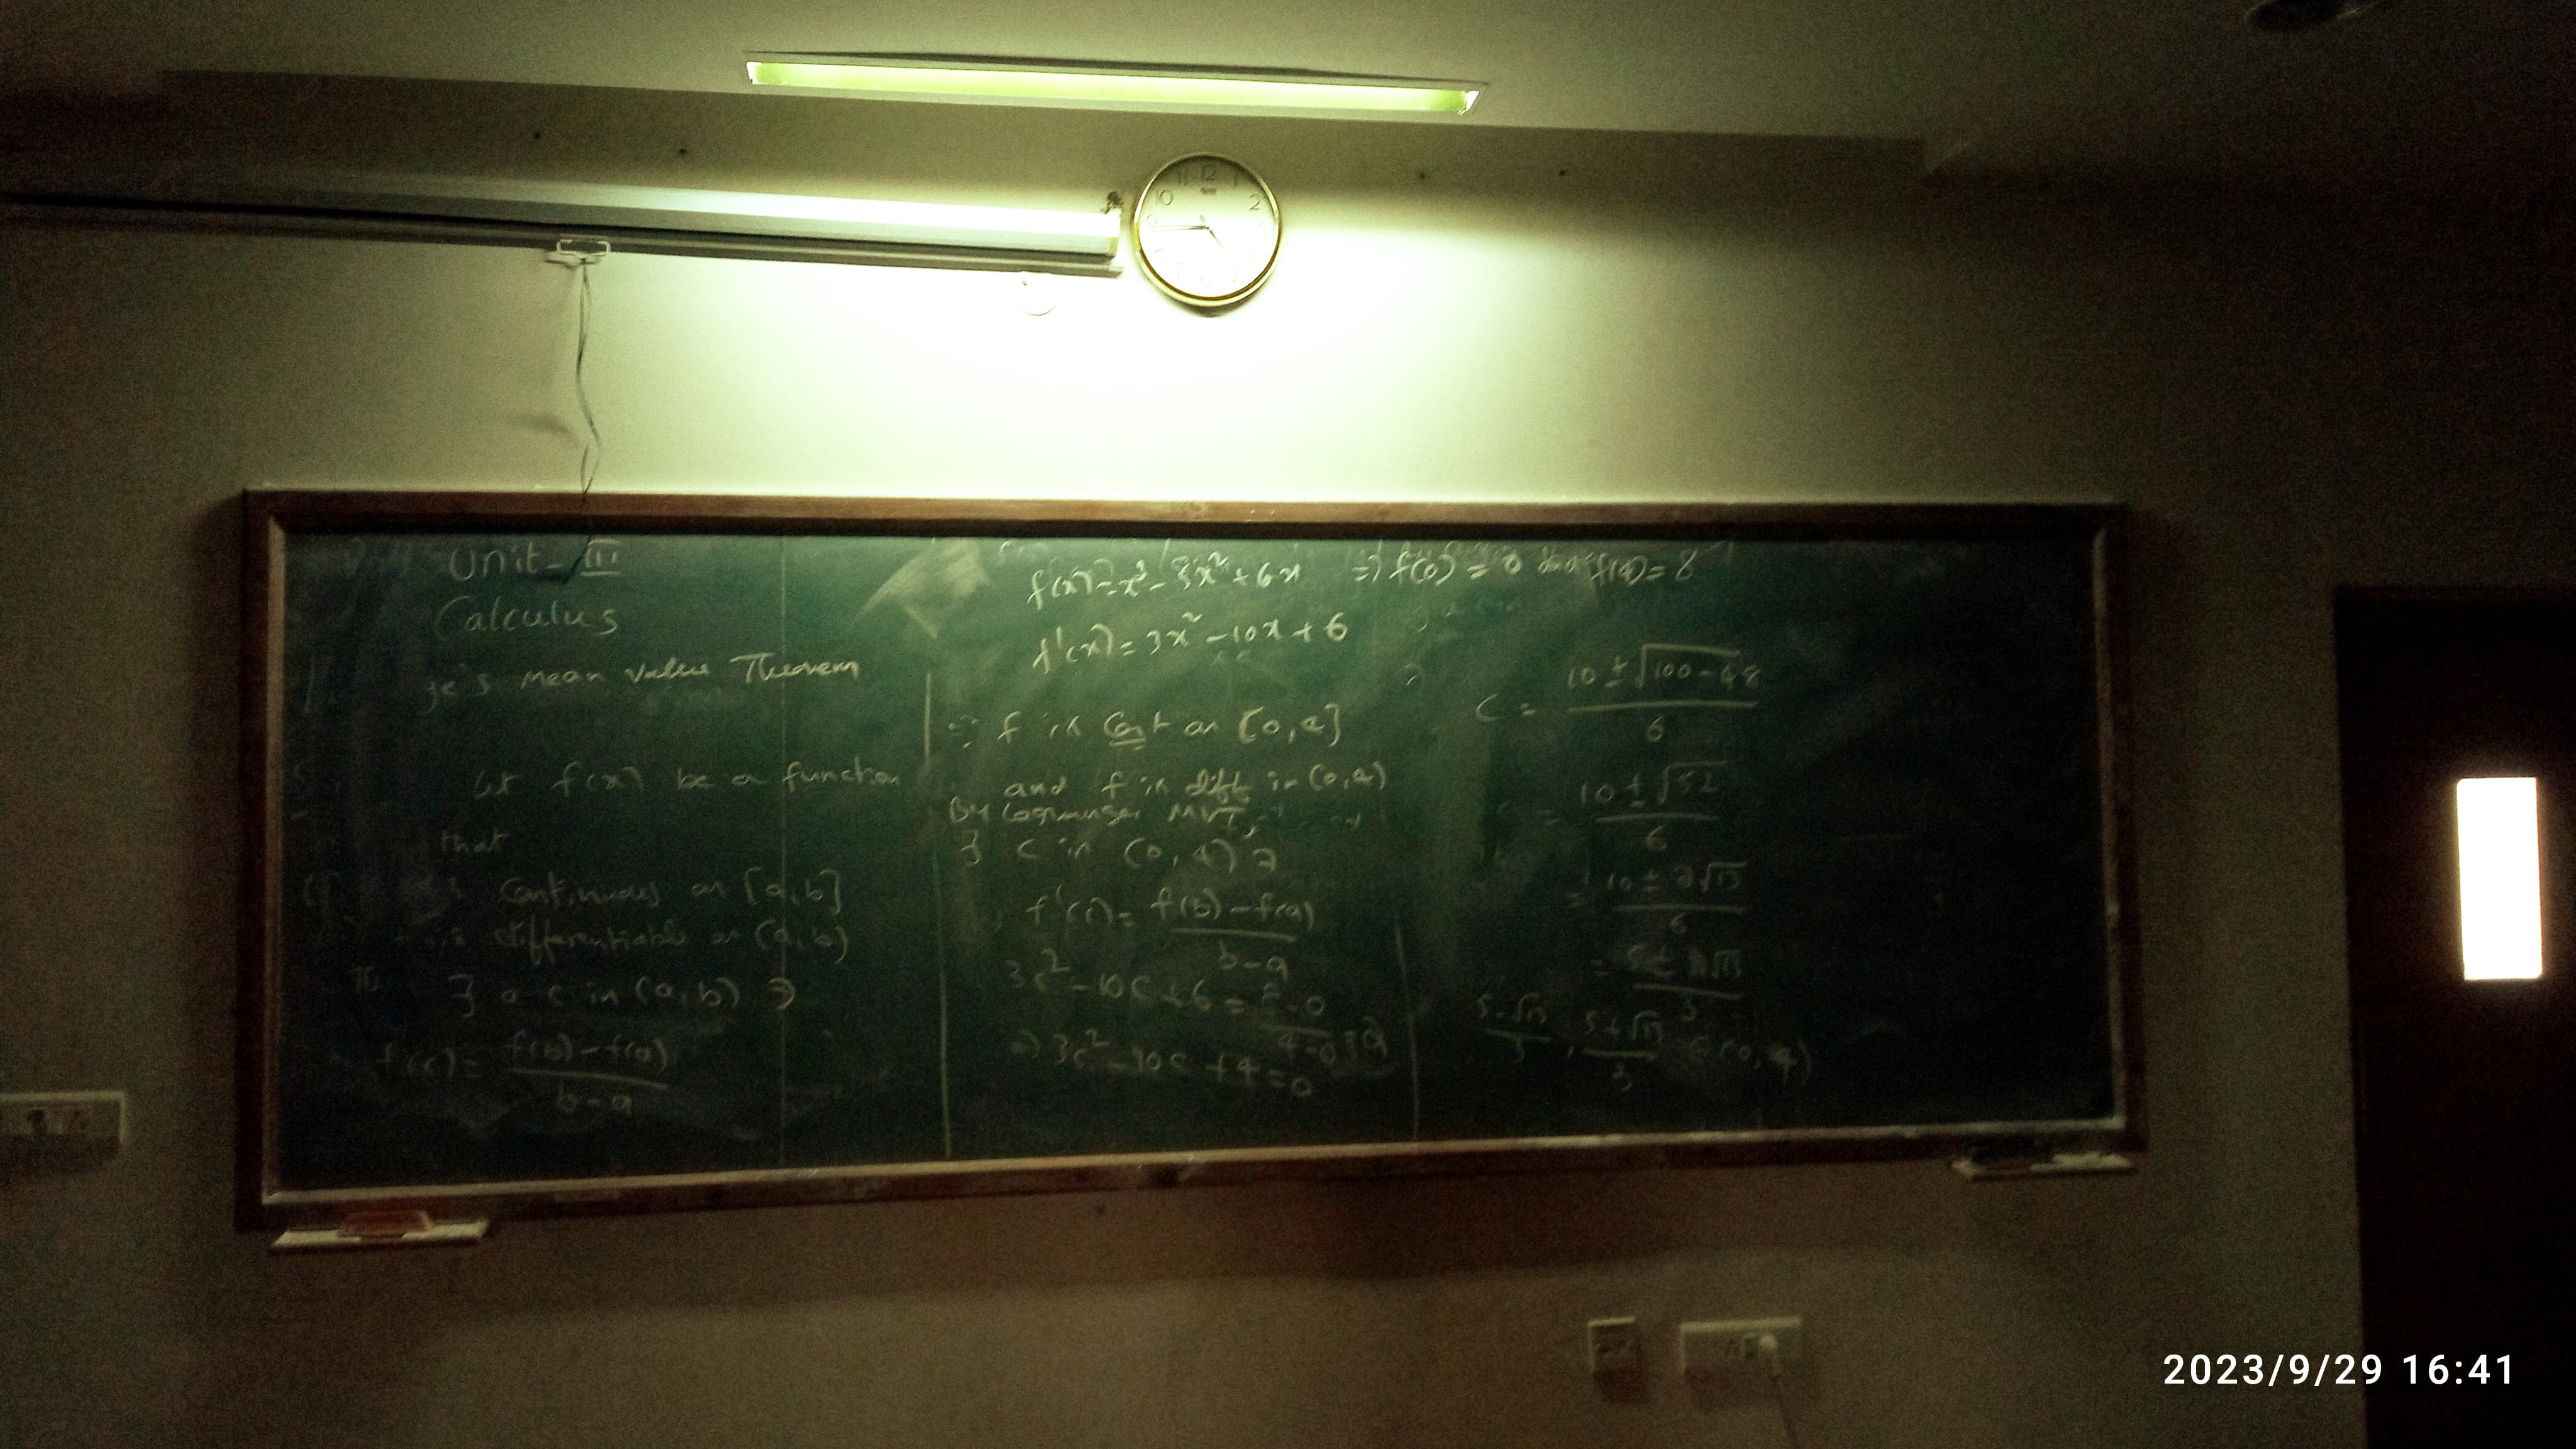 12
1
2
9
10
11
Unit-III
Calculus
ge's Mean Value Theorem
Let f(x) be a function
that
continuous on [a,b]
is differentiable on (a,b)
∃ a c in (a,b) ∋
f'(c) = f(b)-f(a)
b-a
f(x) = x³-5x²+6x ⇒ f(0) = 0 and f(4) = 8
f'(x) = 3x²-10x+6
∵ f is cont on [0,4]
and f is diff in (0,4)
By Lagranges MVT,
∃ c in (0,4) ∋
f'(c) = f(b)-f(a)
b-a
3c²-10c+6 = 8-0
4-0
⇒ 3c²-10c+4=0
c = 10±√100-48
6
= 10±√52
6
= 10±2√13
6
= 5±√13
3
5-√13
3
, 5+√13
3
∈ (0,4)
2023/9/29 16:41